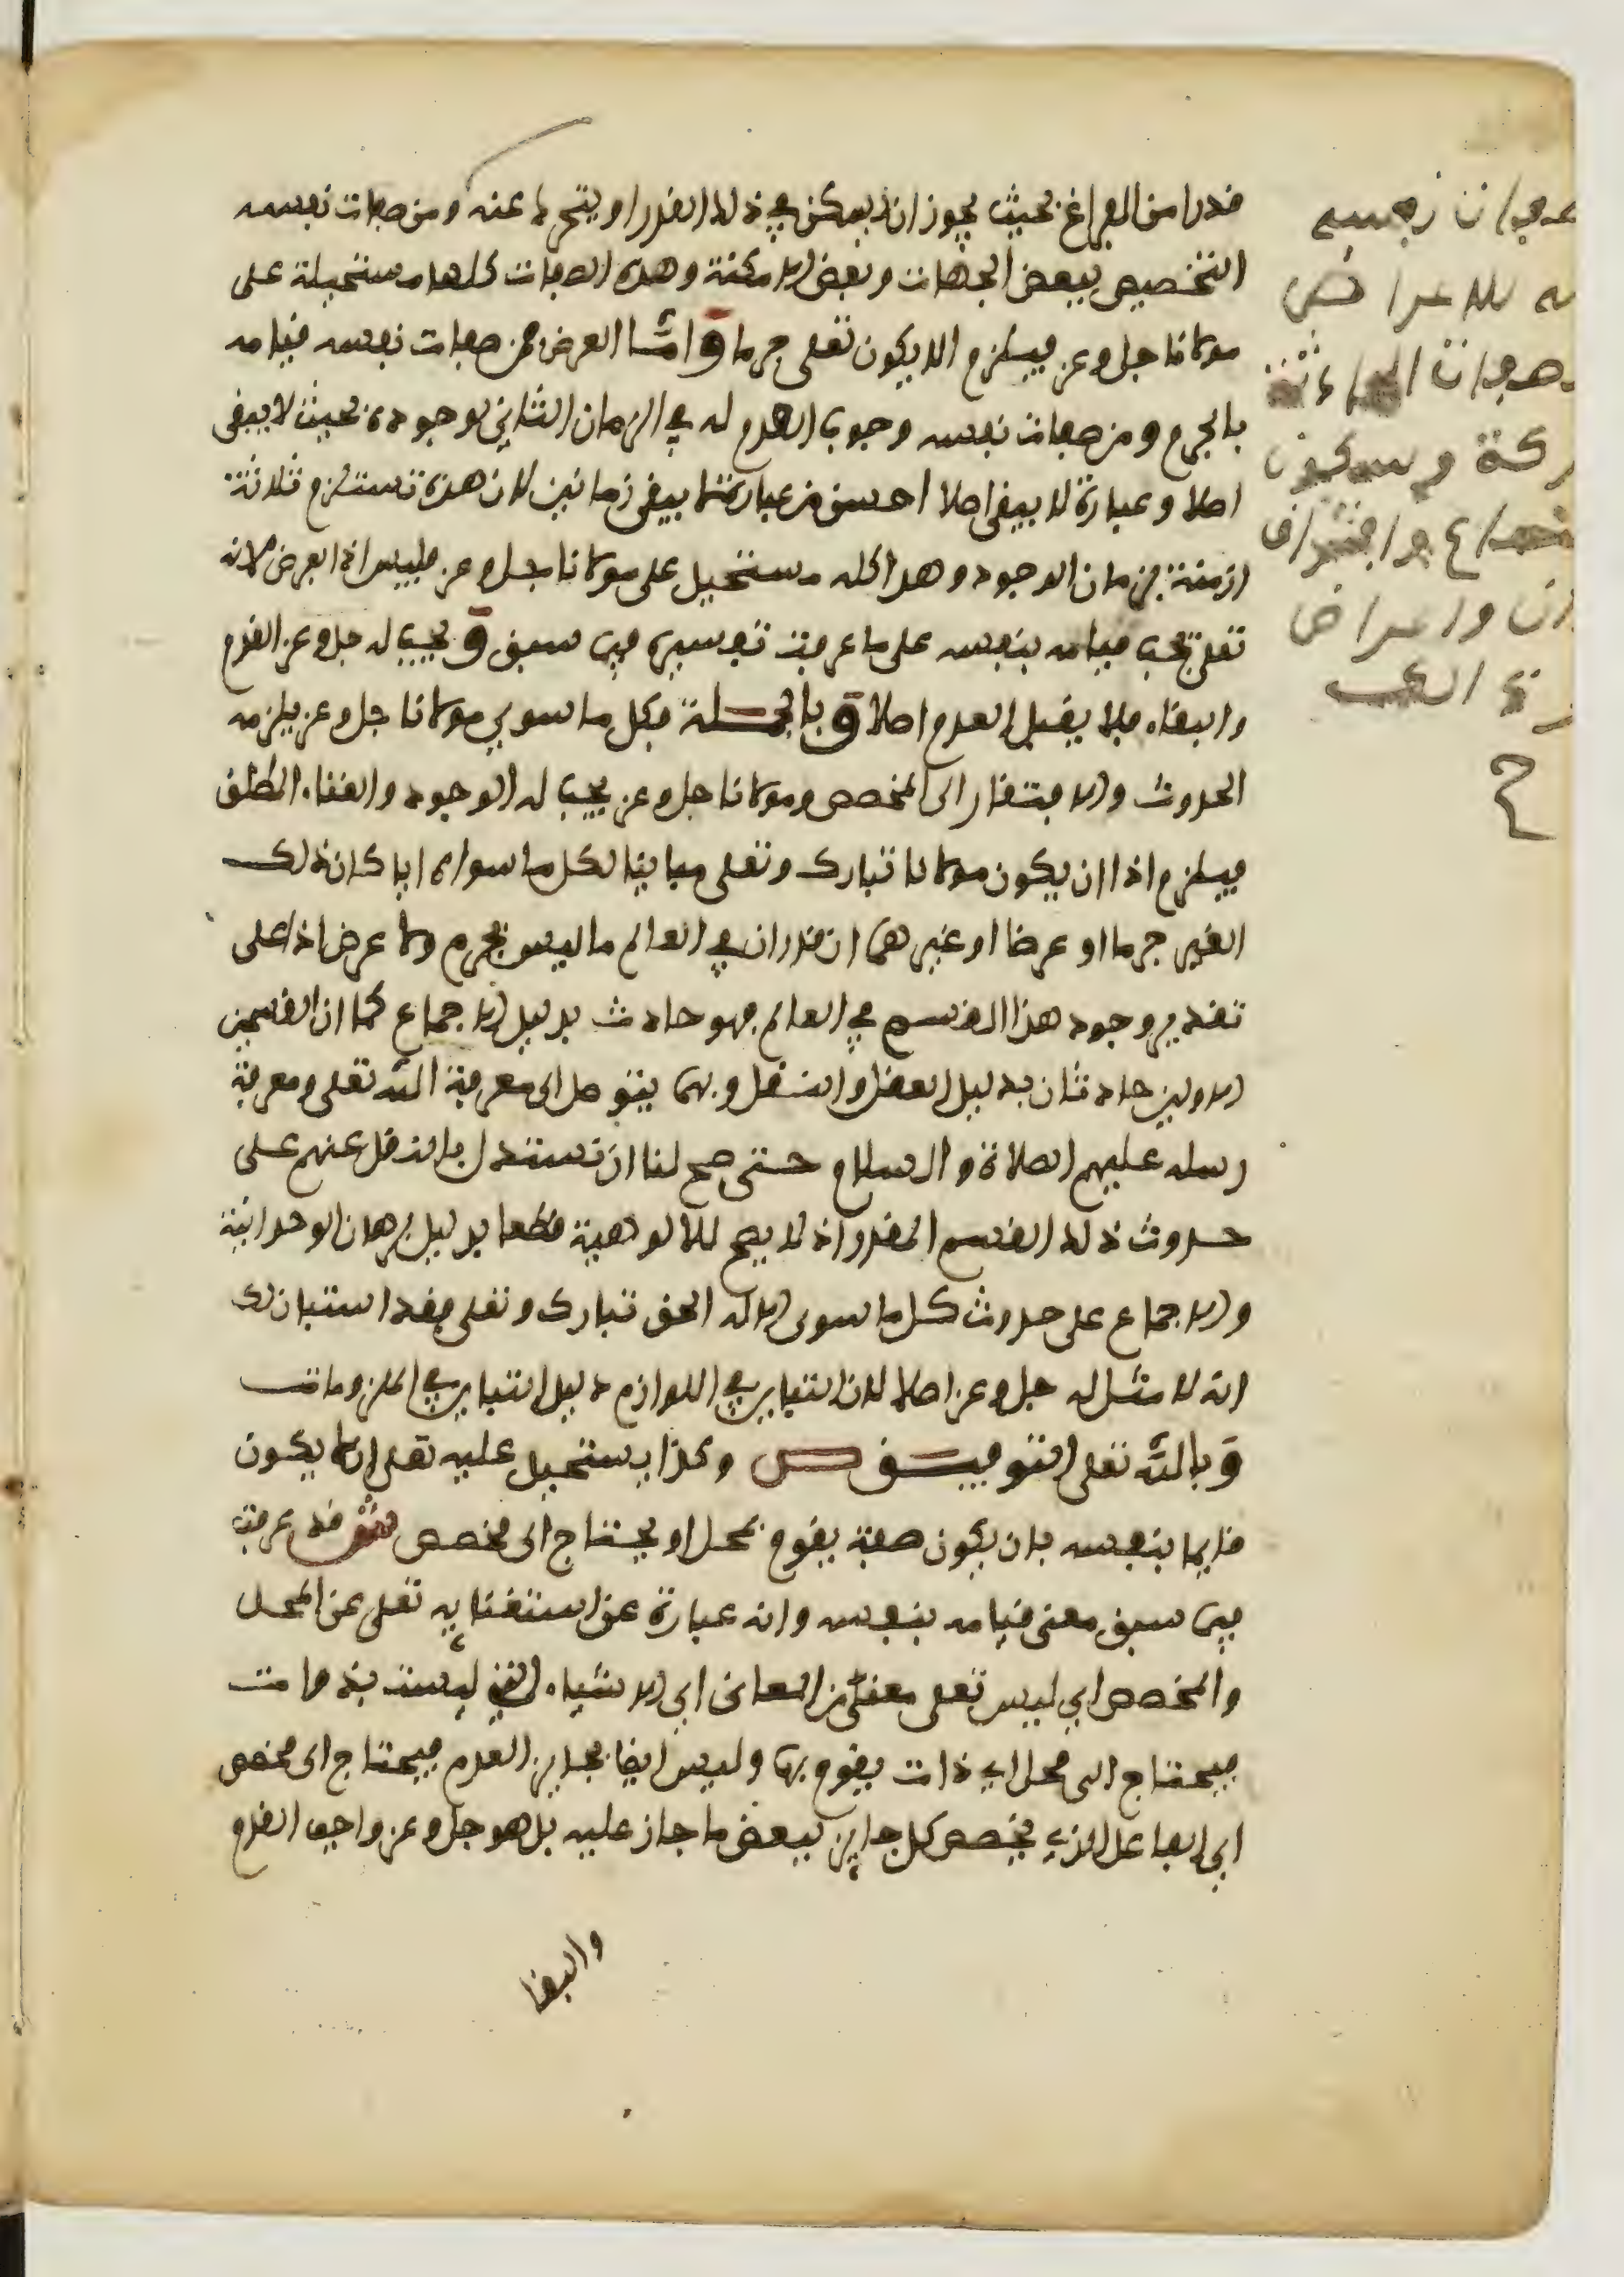 قدرا من الفراغ بحيث يجوز ان يسكن في ذلك القدر او يتحرك عنه ومن صفات نفسه
التخصيص ببعض الجهات وبعض الامكنة وهذه الصفات كلها مستحيلة على
مولانا جل وعز فيلزم الا يكون تعلى جرما وامّا العرض فمن صفات نفسه قيامه
بالجرم ومن صفات نفسه وجوب العدم له في الزمان الثاني لوجوده بحيث لا يبقى
اصلا وعبارة لا يبقى اصلا احسن من عبارة لا يبقى زمانين لان هذه تستلزم ثلاثة
ازمنة بزمان الوجود وهذا كله مستحيل على مولانا جل وعز فليس اذا بعرض لانه
تعلى يجب قيامه بنفسه على ما عرفت تفسيره فيما سبق ويجب له جل وعز القدم
والبقاء فلا يقبل العدم اصلا وبالجملة فكل ما سوى مولانا جل وعز يلزمه
الحدوث والافتقار الى المخصص ومولانا جل وعز يجب له الوجود والغناء المطلق
فيلزم اذا ان يكون مولانا تبارك وتعلى مباينا لكل ما سواه ايا كان ذلك
الغير جرما او عرضا او غيرهما ان قدر ان في العالم ما ليس بجرم ولا عرض اذ على
تقدير وجود هذا القسم في العالم فهو حادث بدليل الاجماع كما ان القسمين
الاولين حادثان بدليل العقل والنقل وبهما يتوصل الى معرفة الله تعلى ومعرفة
رسله عليهم الصلاة والسلام حتى صح لنا ان نستدل بالنقل عنهم على
حدوث ذلك القسم المقدر اذ لا يصح للالوهية قطعا بدليل برهان الوحدانية
والاجماع على حدوث كل ما سوى الاله الحق تبارك وتعلى فقد استبان لك
انه لا مثل له جل وعز اصلا لان التباين في اللوازم دليل التباين في الملزومات
وبالله تعلى التوفيق ص وكذا يستحيل عليه تعلى ان لا يكون
قايما بنفسه بان يكون صفة يقوم بمحل او يحتاج الى مخصص ش قد عرفت
فيما سبق معنى قيامه بنفسه وانه عبارة عن استغنايه تعلى عن المحل
والمخصص اي ليس تعلى معنى من المعاني اي الاشياء التي ليست بذوات
فيحتاج الى محل اي ذات يقوم بها وليس ايضا بجايز العدم فيحتاج الى مخصص
اي الفاعل الذي يخصص كل جايز ببعض ما جاز عليه بل هو جل وعز واجب القدم
والبقا
نفسه
للاعراض
وسكون
وافتراق
واعراض